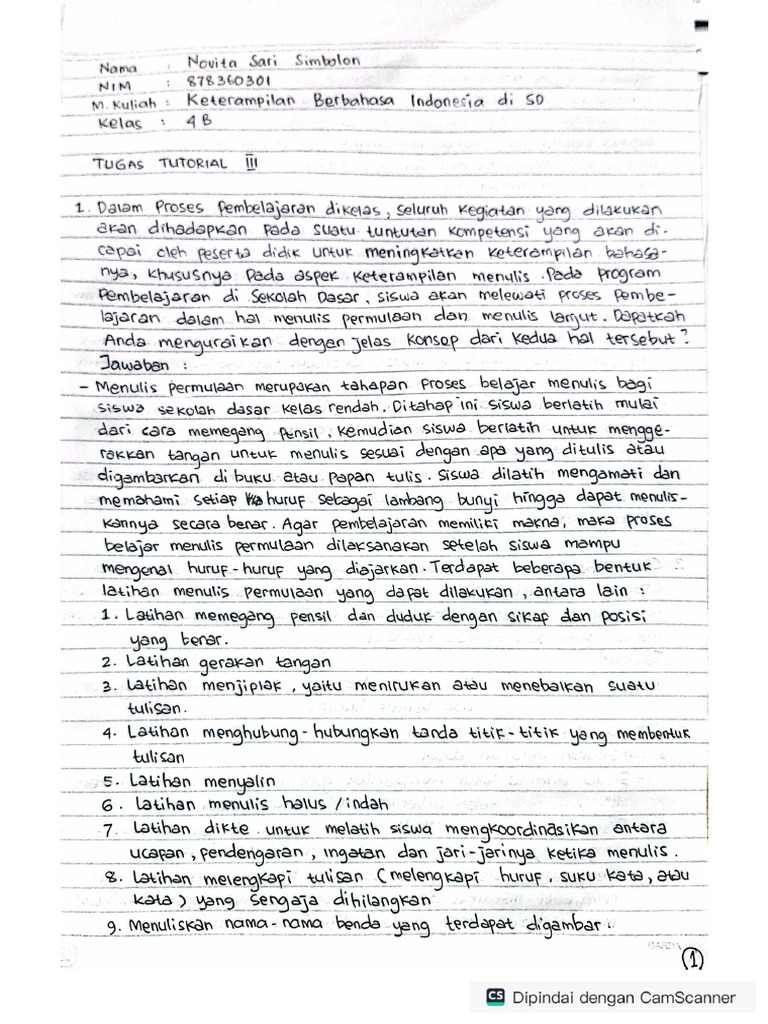 Nama : Novita Sari Simbolon
NIM : 878360301
M. Kuliah : Keterampilan Berbahasa Indonesia di SD
Kelas : 4 B
TUGAS TUTORIAL III
1. Dalam Proses Pembelajaran dikelas, seluruh kegiatan yang dilakukan
akan dihadapkan pada suatu tuntutan kompetensi yang akan di-
capai oleh peserta didik untuk meningkatkan keterampilan bahasa-
nya, khususnya pada aspek keterampilan menulis. Pada program
Pembelajaran di Sekolah Dasar, siswa akan melewati proses pembe-
lajaran dalam hal menulis permulaan dan menulis lanjut. Dapatkah
Anda menguraikan dengan jelas konsep dari kedua hal tersebut?
Jawaban :
- Menulis permulaan merupakan tahapan proses belajar menulis bagi
siswa sekolah dasar kelas rendah. Ditahap ini siswa berlatih mulai
dari cara memegang pensil, kemudian siswa berlatih untuk mengge-
rakkan tangan untuk menulis sesuai dengan apa yang ditulis atau
digambarkan di buku atau papan tulis. Siswa dilatih mengamati dan
memahami setiap huruf sebagai lambang bunyi hingga dapat menulis-
kannya secara benar. Agar pembelajaran memiliki makna, maka proses
belajar menulis permulaan dilaksanakan setelah siswa mampu
mengenal huruf-huruf yang diajarkan. Terdapat beberapa bentuk
latihan menulis permulaan yang dapat dilakukan, antara lain :
1. Latihan memegang pensil dan duduk dengan sikap dan posisi
yang benar.
2. Latihan gerakan tangan
3. Latihan menjiplak, yaitu menirukan atau menebalkan suatu
tulisan.
4. Latihan menghubung-hubungkan tanda titik-titik yang membentuk
tulisan
5. Latihan menyalin
6. Latihan menulis halus/indah
7. Latihan dikte untuk melatih siswa mengkoordinasikan antara
ucapan, pendengaran, ingatan dan jari-jarinya ketika menulis.
8. Latihan melengkapi tulisan (melengkapi huruf, suku kata, atau
kata) yang sengaja dihilangkan
9. Menuliskan nama-nama benda yang terdapat digambar.
1
CS Dipindai dengan CamScanner